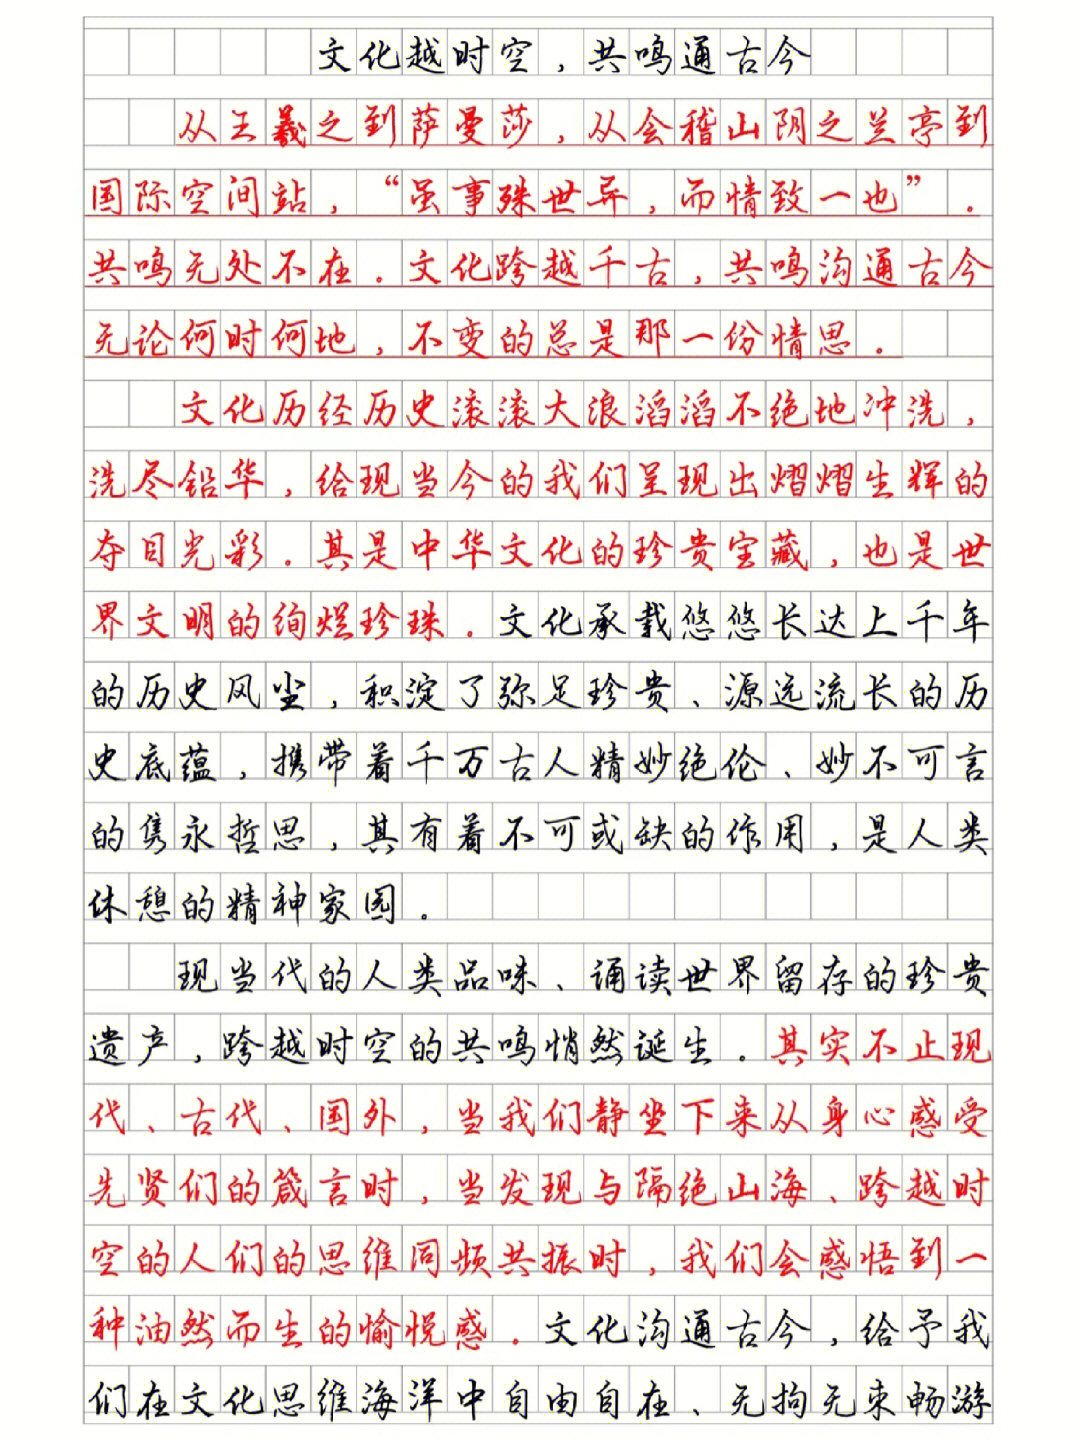 文化越时空，共鸣通古今
从王羲之到萨曼莎，从会稽山阴之兰亭到
国际空间站，“虽事殊世异，而情致一也”。
共鸣无处不在。文化跨越千古，共鸣沟通古今
无论何时何地，不变的总是那一份情思。
文化历经历史滚滚大浪滔滔不绝地冲洗，
洗尽铅华，给现当今的我们呈现出熠熠生辉的
夺目光彩。其是中华文化的珍贵宝藏，也是世
界文明的绚烂珍珠。文化承载悠悠长达上千年
的历史风尘，积淀了弥足珍贵、源远流长的历
史底蕴，携带着千万古人精妙绝伦、妙不可言
的隽永哲思，其有着不可或缺的作用，是人类
休憩的精神家园。
现当代的人类品味、诵读世界留存的珍贵
遗产，跨越时空的共鸣悄然诞生。其实不止现
代、古代、国外，当我们静坐下来从身心感受
先贤们的箴言时，当发现与隔绝山海、跨越时
空的人们的思维同频共振时，我们会感悟到一
种油然而生的愉悦感。文化沟通古今，给予我
们在文化思维海洋中自由自在、无拘无束畅游